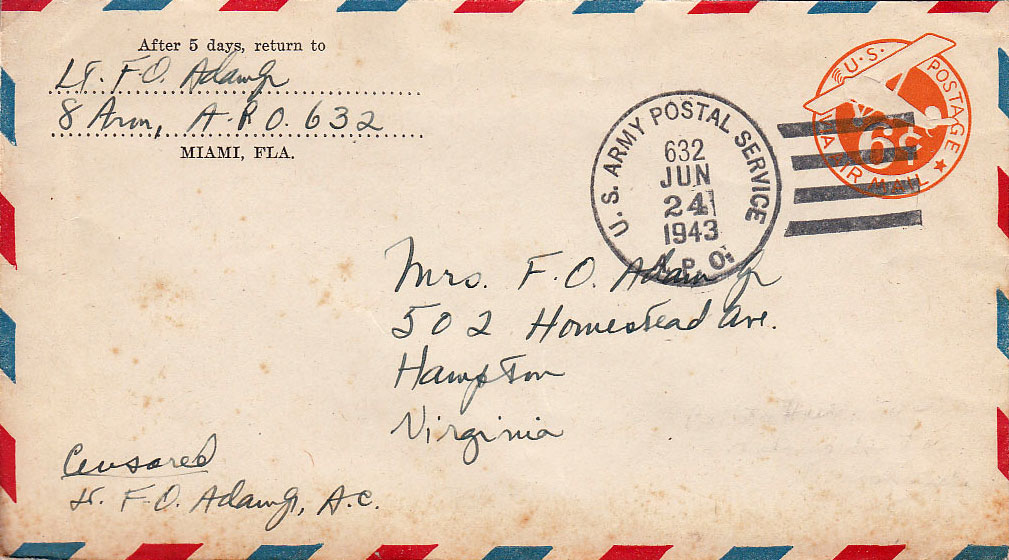 After 5 days, return to
Lt. F. O. Adam Jr
8 Arm, A.P.O. 632
MIAMI, FLA.
U.S. POSTAGE
6¢
AIR MAIL
U. S. ARMY POSTAL SERVICE
632
JUN
24
1943
A.P.O.
Mrs. F. O. Adam Jr
502 Homestead Ave.
Hampton
Virginia
Censored
Lt. F. O. Adam Jr, A.C.